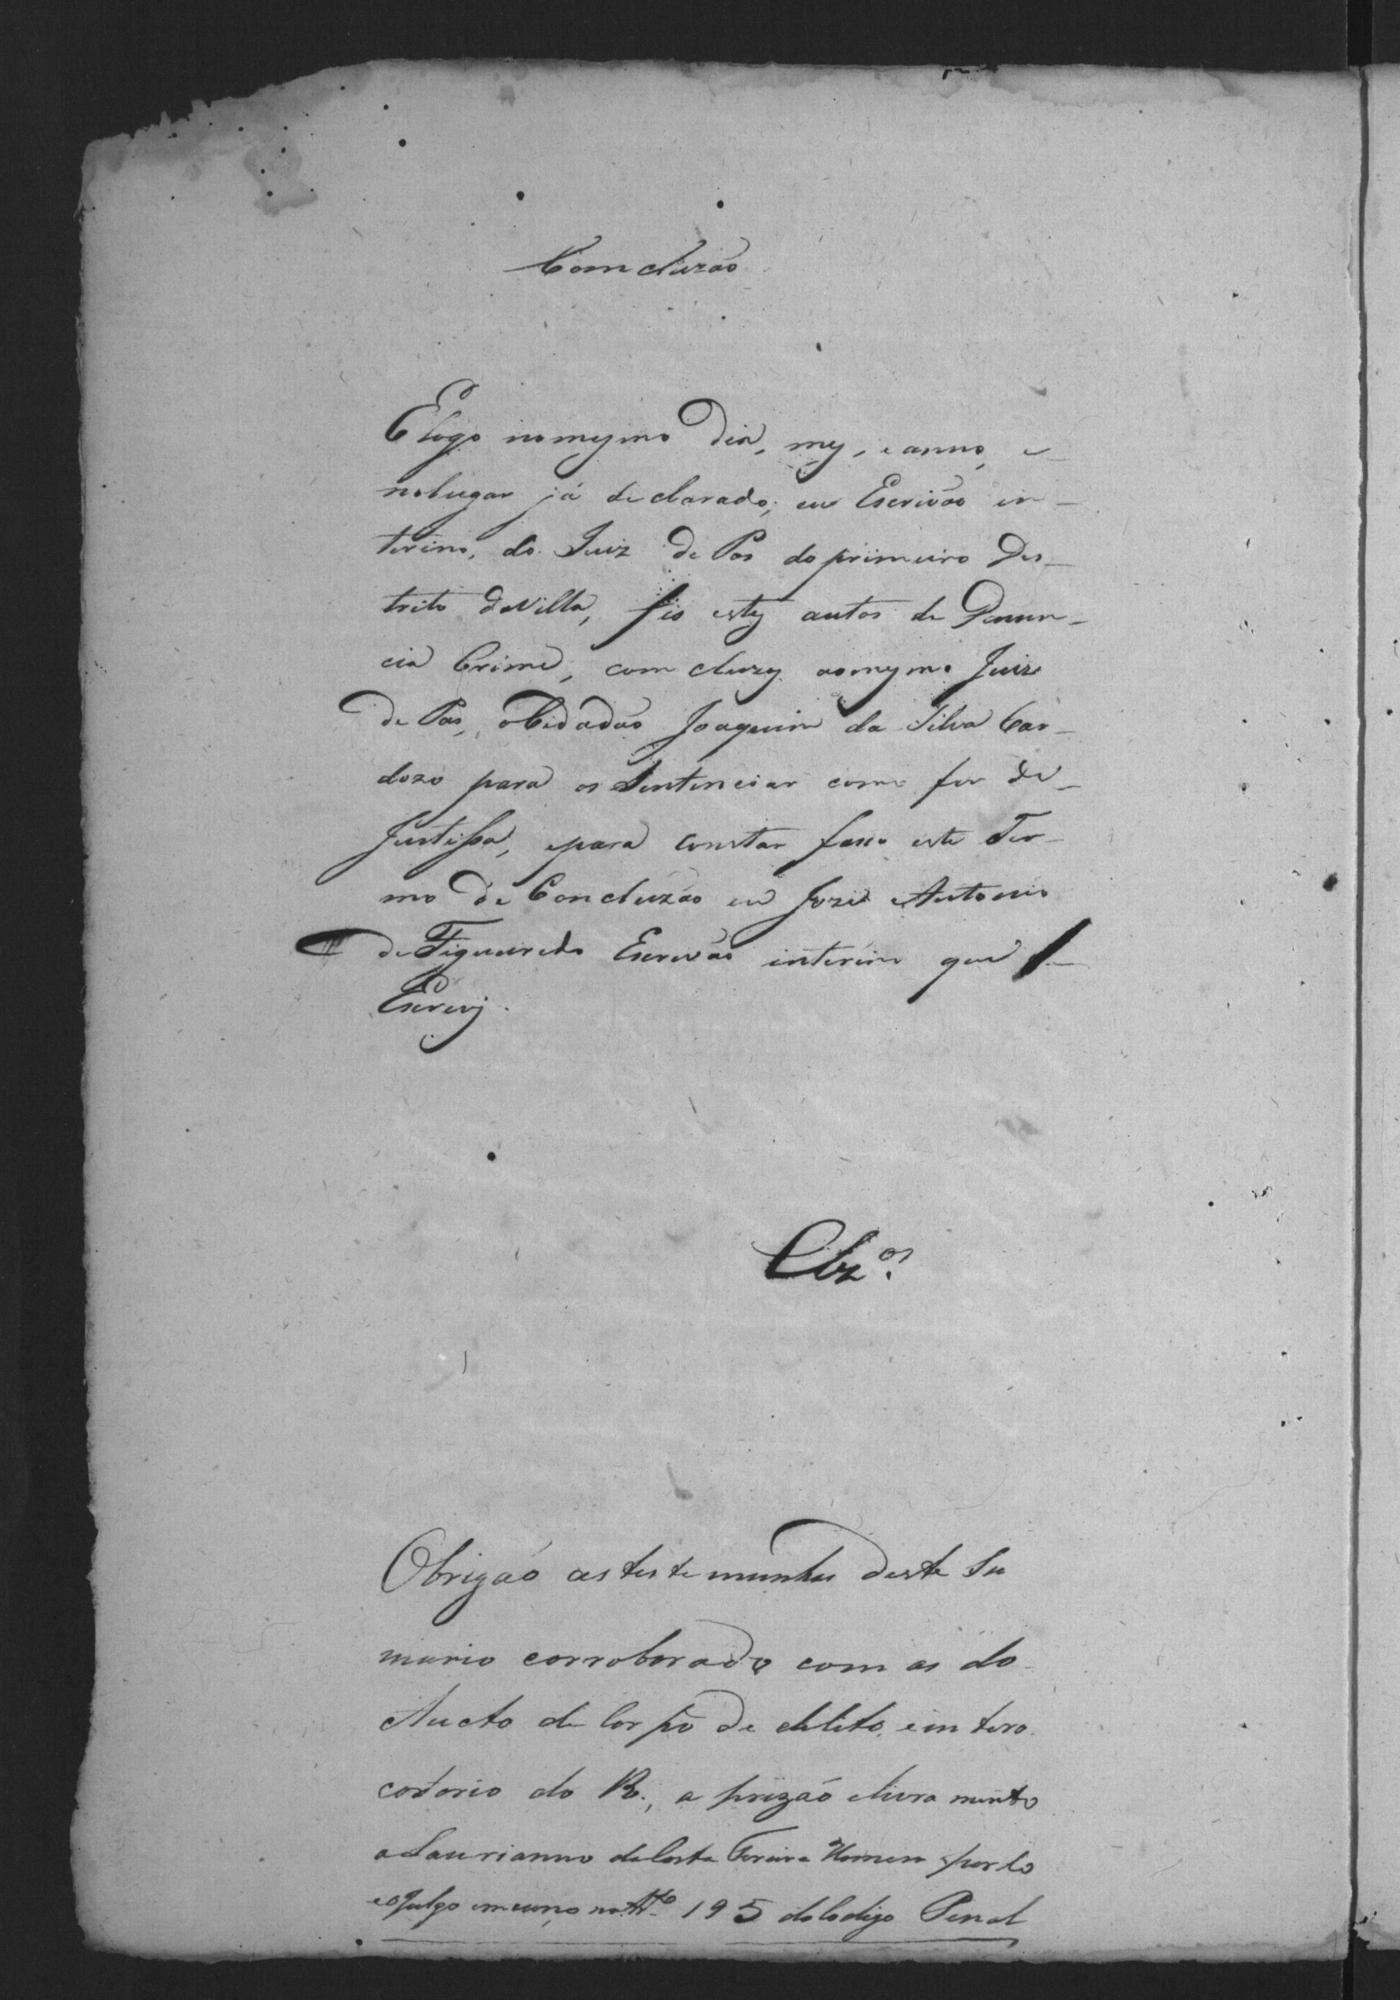 Comcluzão
E logo nomesmo Dia, mes, e anno, e
nolugar já declarado, eu Escrivão in-
terino, do Juiz de Pas do primeiro Des-
trito daVilla, fis estes autos de Denun-
cia Crime, com cluzos aomesmo Juis
de Pas, oCidadão Joaquim da Silva Car-
dozo para os Sentenciar como for de
Justissa, epara constar fasso este Ter-
mo de Concluzão eu Jozé Antonio
de Figueiredo Escrivão interino que
Escrevy.
Clzos.
Obrigão as testemunhas deste Su
mario corroborado com as do
Aucto de Corpo de delito, e in tero
catorio do R., a prizão elivra mento
a Laurianno da Costa Pereira Homem
e ojulgo in curço no Arto. 195 do Codigo Penal